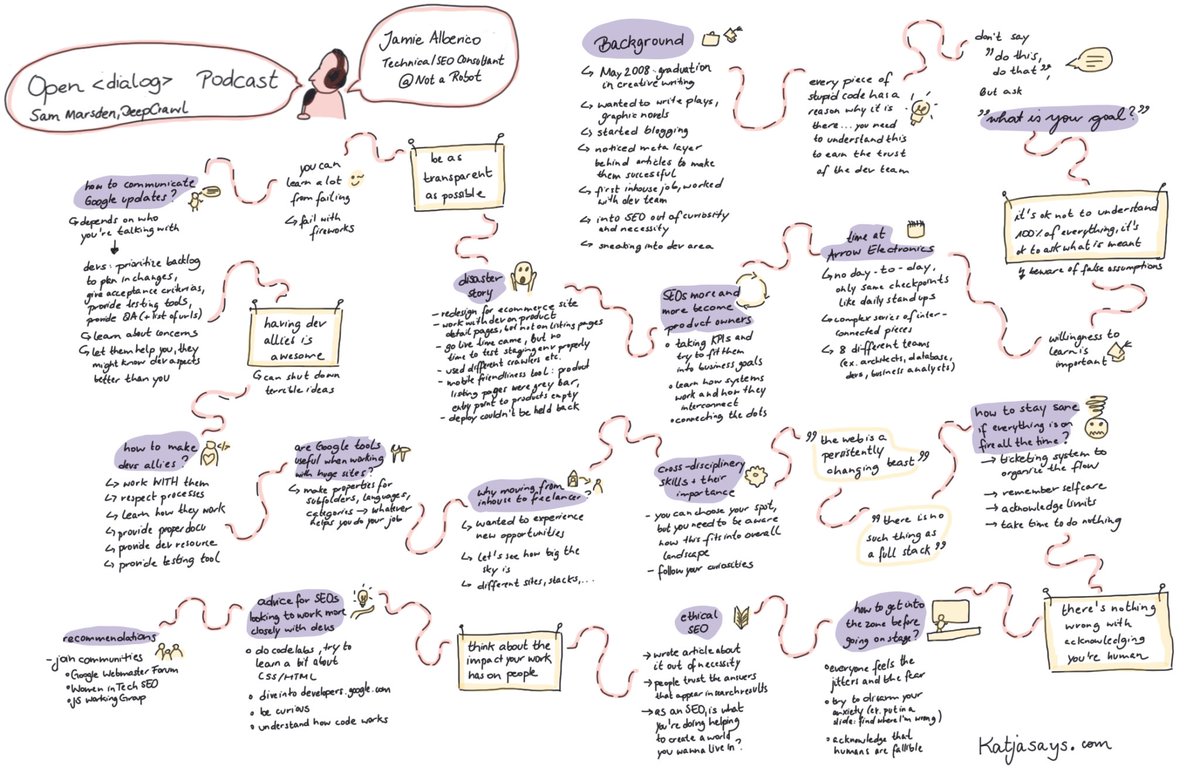 Open <dialog> Podcast
Sam Marsden, DeepCrawl
Jamie Alberico
Technical SEO Consultant
@Not a Robot
Background
↳ May 2008 - graduation
in creative writing
↳ wanted to write plays,
graphic novels
↳ started blogging
↳ noticed meta layer
behind articles to make
them succesful
↳ first inhouse job, worked
with dev team
↳ into SEO out of curiosity
and necessity
↳ sneaking into dev area
every piece of
stupid code has a
reason why it is
there... you need
to understand this
to earn the trust
of the dev team
don't say
"do this,
do that",
But ask
"what is your goal?"
it's ok not to understand
100% of everything, it's
ok to ask what is meant
↳ beware of false assumptions
willingness to
learn is
important
time at
Arrow Electronics
↳ no day-to-day,
only same checkpoints
like daily stand ups
↳ complex series of inter-
connected pieces
↳ 8 different teams
(ex. architects, database,
devs, business analysts)
SEOs more and
more become
product owners
• taking KPIs and
try to fit them
into business goals
• learn how systems
work and how they
interconnect
• connecting the dots
disaster
story
- redesign for ecommerce site
- work with dev on product
detail pages, but not on listing pages
- go live time came, but no
time to test staging env properly
- used different crawlers etc.
- mobile friendliness tool: product
listing pages were grey bar,
entry point to products empty
- deploy couldn't be held back
be as
transparent
as possible
you can
learn a lot
from failing
↳ fail with
fireworks
how to communicate
Google updates?
↳ depends on who
you're talking with
devs: prioritize backlog
to plan in changes,
give acceptance criterias,
provide testing tools,
provide QA (+ list of urls)
↳ learn about concerns
↳ let them help you, they
might know dev aspects
better than you
having dev
allies is
awesome
↳ can shut down
terrible ideas
how to make
devs allies?
↳ work WITH them
↳ respect processes
↳ learn how they work
↳ provide proper docu
↳ provide dev resource
↳ provide testing tool
are Google tools
useful when working
with huge sites?
↳ make properties for
subfolders, languages,
categories → whatever
helps you do your job
why moving from
inhouse to freelancer?
↳ wanted to experience
new opportunities
↳ let's see how big the
sky is
↳ different sites, stacks,...
cross-disciplinary
skills + their
importance
- you can choose your spot,
but you need to be aware
how this fits into overall
landscape
- follow your curiosities
"the web is a
persistently
changing beast"
"there is no
such thing as
a full stack"
how to stay sane
if everything is on
fire all the time?
→ ticketing system to
organize the flow
→ remember selfcare
→ acknowledge limits
→ take time to do nothing
there's nothing
wrong with
acknowledging
you're human
how to get into
the zone before
going on stage?
• everyone feels the
jitters and the fear
• try to disarm your
anxiety (ex. put in a
slide: find where I'm wrong)
• acknowledge that
humans are fallible
ethical
SEO
→ wrote article about
it out of necessity
→ people trust the answers
that appear in search results
→ as an SEO, is what
you're doing helping
to create a world
you wanna live in?
think about the
impact your work
has on people
advice for SEOs
looking to work more
closely with devs
• do codelabs, try to
learn a bit about
CSS/HTML
• dive into developers.google.com
• be curious
• understand how code works
recommendations
- join communities
• Google Webmaster Forum
• Women in Tech SEO
• JS Working Group
Katjasays.com